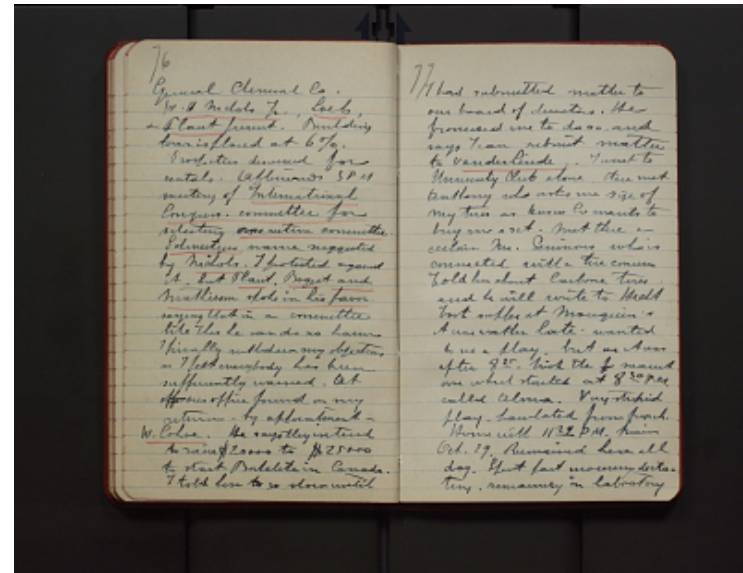 76
General Chemical Co.
W. H. Nichols Jr., Loeb,
& Plant present. Building
loss is placed at 60%.
Properties discussed for
metals. Afternoon 3 P.M
meeting of International
Congress. committee for
selecting executive committee.
Schweitzer name suggested
by Nichols. I protested against
it, but Plant, and
Mathieson in his favor
saying that in a committee
like this he can do no harm
I finally withdrew my objections
as I felt everybody has been
sufficiently warned. At
office found on my
return - by appointment -
W. Cohoe. He says they intend
to raise $20000 to $25000
to start Bakelite in Canada.
I told him to go slow until
77
I had submitted matter to
our board of directors. He
promised me to do so and
says I can submit matter
to Vanderlinde. I went to
University Club alone. There met
Anthony who asks me size of
my tires as Co wants to
buy me a set. Met there a
certain Mr. who is
connected with a tire concern
Told him about Carbone tires
and he will write to
Took supper at Mouquin's
A rather late. wanted
to see a play, but as it was
after 8 25. Took the nearest
one which started at 8 30 P.M.
called . Very stupid
play. translated from french.
Home until 11 30 P.M.
Oct. 29. Remained here all
day. Spent past morning dicta-
ting, remaining in laboratory